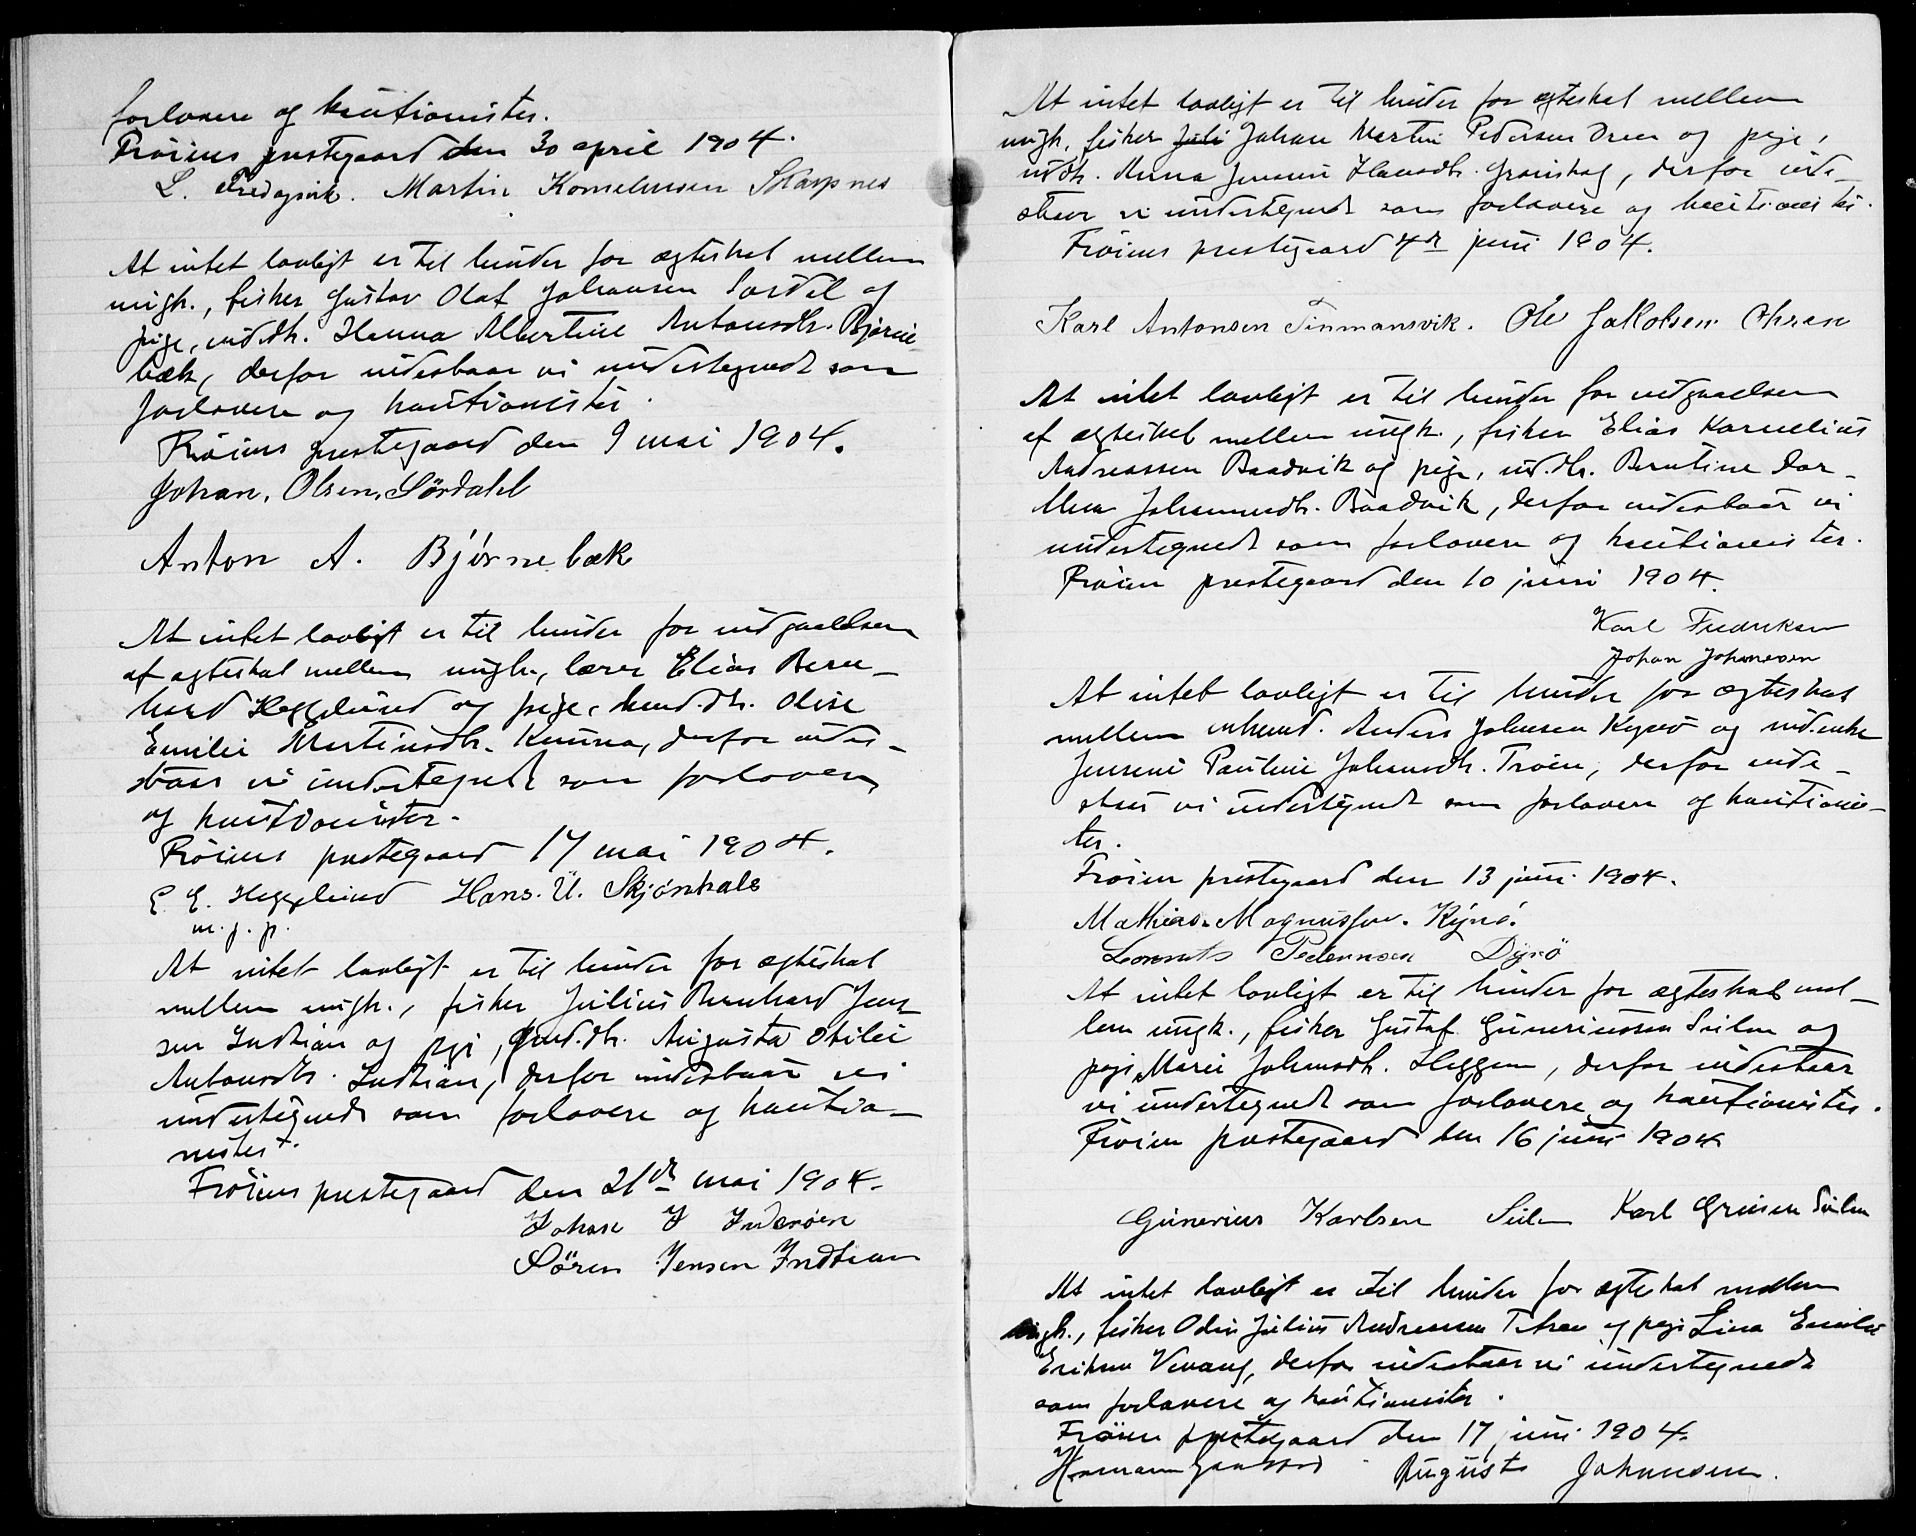 forlovere og kautionister.
Frøiens prestegaard den 30 april 1904.
L. Fredagsvik. Martin Kornelиusen Skarpnes
At intet lovligt er til hinder for ægteskab mellem
ungk., fisker Gustav Olaf Johansen Sørdal og
pige, inddt. Hanna Albertine Antonsdt. Bjørne
bæk, derfor indestaar vi undertegnede som
forlovere og kautionister.
Frøiens prestegaard den 9 mai 1904.
Johan. Olsen. Sørdahl
Anton A. Bjørnebæk
At intet lovligt er til hinder for indgaaelsen
af ægteskab mellem ungk., lærer Elias Bern-
hard Hegglund og pige, Olise
Emilie Martinsdt. derfor indes-
taar vi undertegnede som forlovere
og kautionister.
Frøiens prestegaard 17 mai 1904.
E. E. Hegglund Hans. U. Skjønhals
m. f. p.
At intet lovligt er til hinder for ægteskab
mellem ungk., fisker Julius Bernhard Jen
sen Indtian og pige, Augusta Otilie
Antonsdt. Indtian, derfor indestaar vi
undertegnede som forlovere og kautio-
nister.
Frøiens prestegaard den 21de mai 1904.
Johan J Inderøen
Søren Jensen Indtian
At intet lovligt er til hinder for ægteskab mellem
ungk. fisker Johan Martin Pedersen og pige,
Anna Jensine Hansdt. derfor inde-
staar vi undertegnede som forlovere og kautionister.
Frøiens prestegaard 4de juni 1904.
Karl Antonsen Tinmansvik. Ole Jakobsen
At intet lovligt er til hinder for indgaaelsen
af ægteskab mellem ungk., fisker Elias Kornelius
Andreassen Baadvik og pige, Berntine Dor-
thea Johannesdt. Baadvik, derfor indestaar vi
undertegnede som forlovere og kautionister.
Frøien prestegaard den 10 juni 1904.
Karl Fredriksen
Johan Johannesen
At intet lovligt er til hinder for ægteskab
mellem enkemd. Anders Johnsen Kyrø og ind.enke
Jensine Pauline Johansdt. Trøen, derfor inde-
staar vi undertegnede som forlovere og kautionis-
ter.
Frøien prestegaard den 13 juni 1904.
Mathias. Magnussen. Kyrø.
Lornts Pedersen Dyrø
At intet lovligt er til hinder for ægteskab mel-
lem ungk., fisker Gustaf Guneriussen Sulen og
pige Marie Johnsdt. Heggem, derfor indestaar
vi undertegnede som forlovere og kautionister.
Frøien prestegaard den 16 juni 1904
Gunerius Karlsen Karl
At intet lovligt er til hinder for ægteskab mellem
ungk., fisker Odin Julius Andreassen Titran og pige Lina Emilie
Eriksen Vevang, derfor indestaar vi undertegnede
som forlovere og kautionister.
Frøien prestegaard den 17 juni 1904.
August Johannesen.